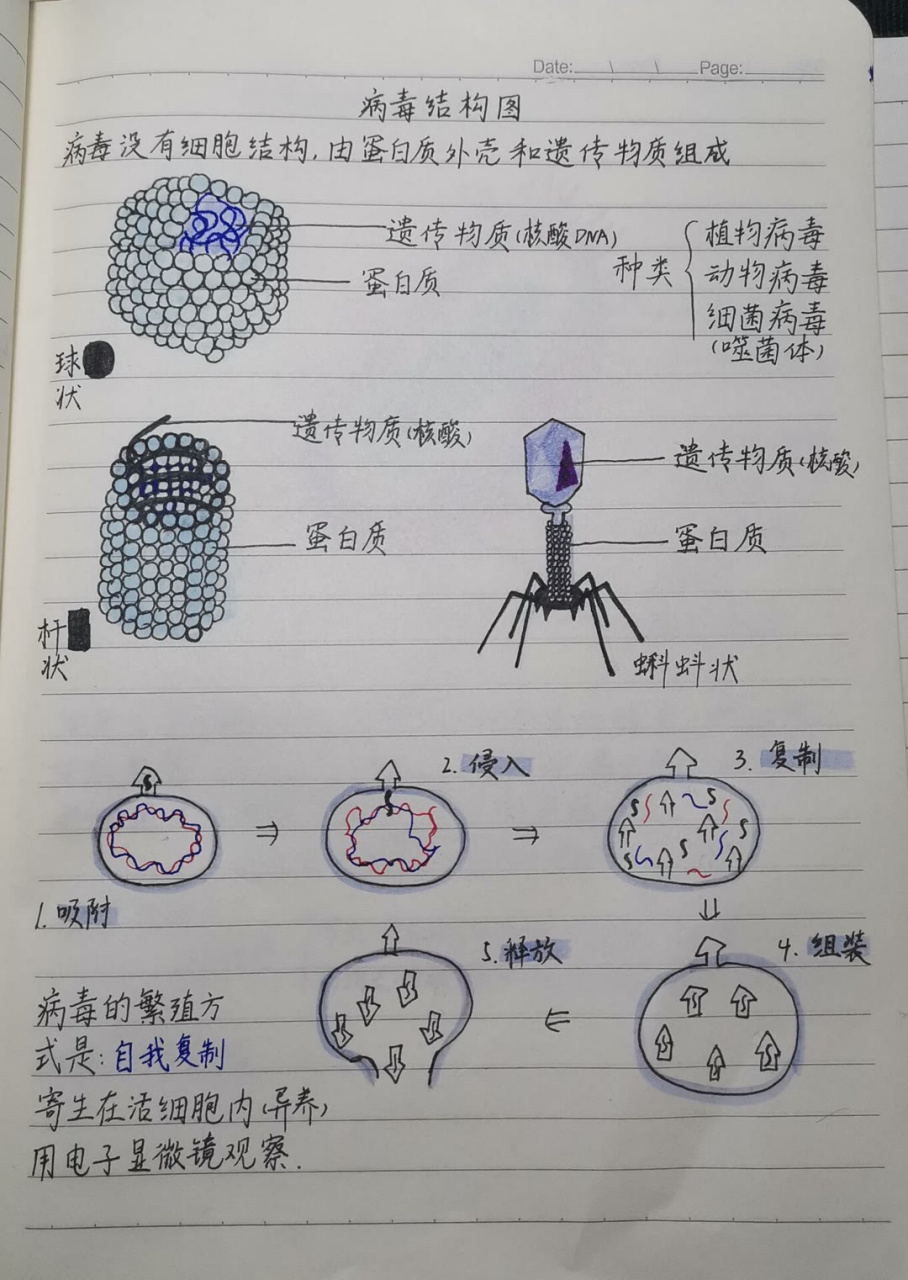 Date: \ \ Page:
病毒结构图
病毒没有细胞结构,由蛋白质外壳和遗传物质组成
遗传物质(核酸DNA)
蛋白质
种类
植物病毒
动物病毒
细菌病毒
(噬菌体)
球
状
遗传物质(核酸)
蛋白质
杆
状
遗传物质(核酸)
蛋白质
蝌蚪状
1.吸附
2.侵入
3.复制
4.组装
5.释放
病毒的繁殖方
式是:自我复制
寄生在活细胞内(异养)
用电子显微镜观察.